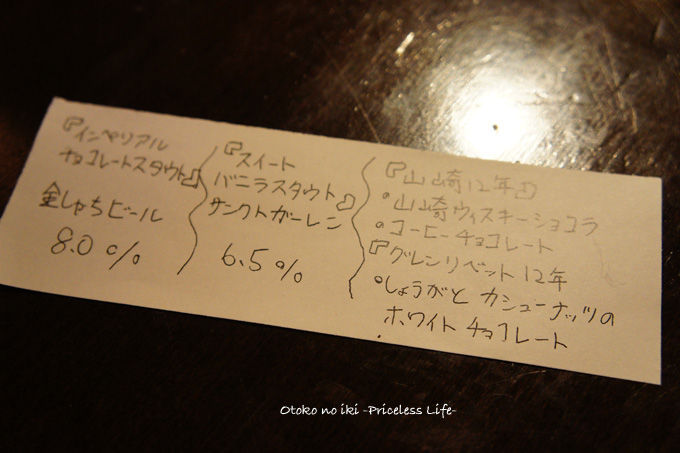 『インペリアル
チョコレートスタウト』
金しゃちビール
8.0%
『スイート
バニラスタウト』
サンクトガーレン
6.5%
『山崎12年』
•山崎ウィスキーショコラ
•コーヒーチョコレート
『グレンリベット12年
•しょうがと カシューナッツの
ホワイトチョコレート
Otoko no iki -Priceless Life-